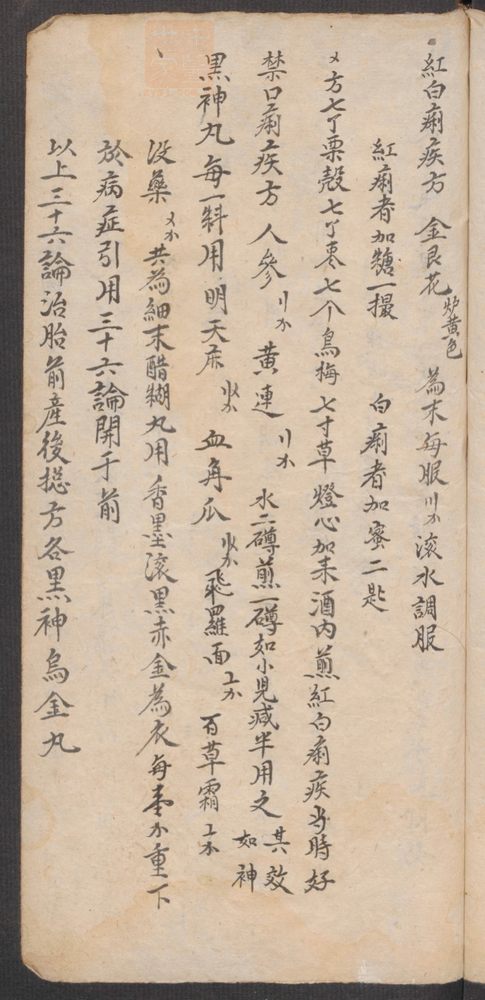 紅白痢疾方 金艮花炒黄色 為末每服〢分滚水調服
紅痢者加糖一撮 白痢者加蜜二匙
又方七丁栗殻七丁枣七个烏梅七寸草燈心加耒酒内煎紅白痢疾当時好
禁口痢疾方 人參 黄連 水二罇煎一罇如小児減半用之其效如神
黒神丸每一料用明天麻 血角瓜 飛羅面 百草霜
没藥 共為細末醋糊丸用香墨滚黒赤金為衣每 重下
於病症引用三十六論開于前
以上三十六論治胎前産後捴方各黒神烏金丸